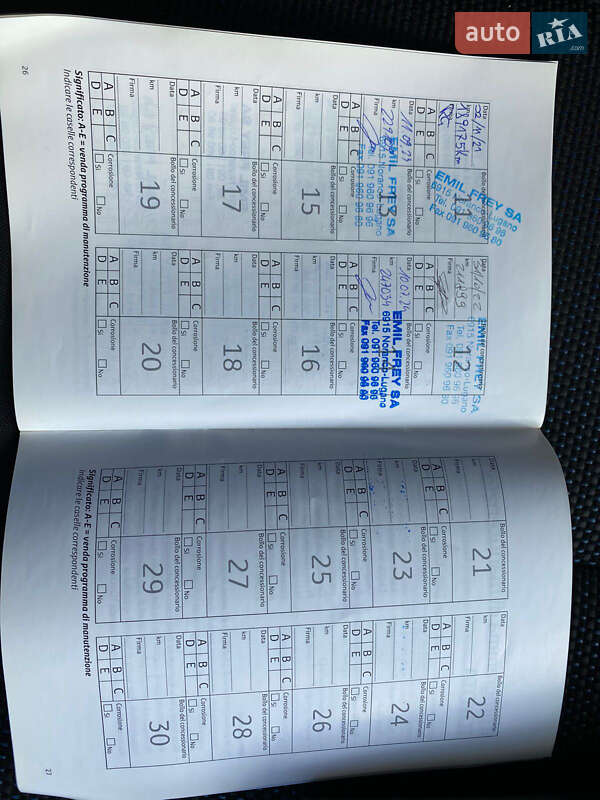 auto RIA .com
26
Data
02/11/21
km
189175km
Firma
Bollo del concessionario
11
EMIL FREY SA
6915 Noranco-Lugano
Tel. 091 960 96 96
Fax 091 960 96 80
A B C
D E
Corrosione
Sì No
Data
km
Firma
Bollo del concessionario
12
EMIL FREY SA
6915 Noranco-Lugano
Tel. 091 960 96 96
Fax 091 960 96 80
A B C
D E
Corrosione
Sì No
Data
11.09.23
km
Firma
Bollo del concessionario
13
EMIL FREY SA
6915 Noranco-Lugano
Tel. 091 960 96 96
Fax 091 960 96 80
A B C
D E
Corrosione
Sì No
Data
km
247034
Firma
Bollo del concessionario
EMIL FREY SA
6915 Noranco-Lugano
Tel. 091 960 96 96
Fax 091 960 96 80
A B C
D E
Corrosione
Sì No
Data
km
Firma
Bollo del concessionario
15
A B C
D E
Corrosione
Sì No
Data
km
Firma
Bollo del concessionario
16
A B C
D E
Corrosione
Sì No
Data
km
Firma
Bollo del concessionario
17
A B C
D E
Corrosione
Sì No
Data
km
Firma
Bollo del concessionario
18
A B C
D E
Corrosione
Sì No
Data
km
Firma
Bollo del concessionario
19
A B C
D E
Corrosione
Sì No
Data
km
Firma
Bollo del concessionario
20
A B C
D E
Corrosione
Sì No
Significato: A-E = venda programma di manutenzione
Indicare le caselle corrispondenti
Data
km
Firma
Bollo del concessionario
21
A B C
D E
Corrosione
Sì No
Data
km
Firma
Bollo del concessionario
22
A B C
D E
Corrosione
Sì No
Data
km
Firma
Bollo del concessionario
23
A B C
D E
Corrosione
Sì No
Data
km
Firma
Bollo del concessionario
24
A B C
D E
Corrosione
Sì No
Data
km
Firma
Bollo del concessionario
25
A B C
D E
Corrosione
Sì No
Data
km
Firma
Bollo del concessionario
26
A B C
D E
Corrosione
Sì No
Data
km
Firma
Bollo del concessionario
27
A B C
D E
Corrosione
Sì No
Data
km
Firma
Bollo del concessionario
28
A B C
D E
Corrosione
Sì No
Data
km
Firma
Bollo del concessionario
29
A B C
D E
Corrosione
Sì No
Data
km
Firma
Bollo del concessionario
30
A B C
D E
Corrosione
Sì No
Significato: A-E = venda programma di manutenzione
Indicare le caselle corrispondenti
27